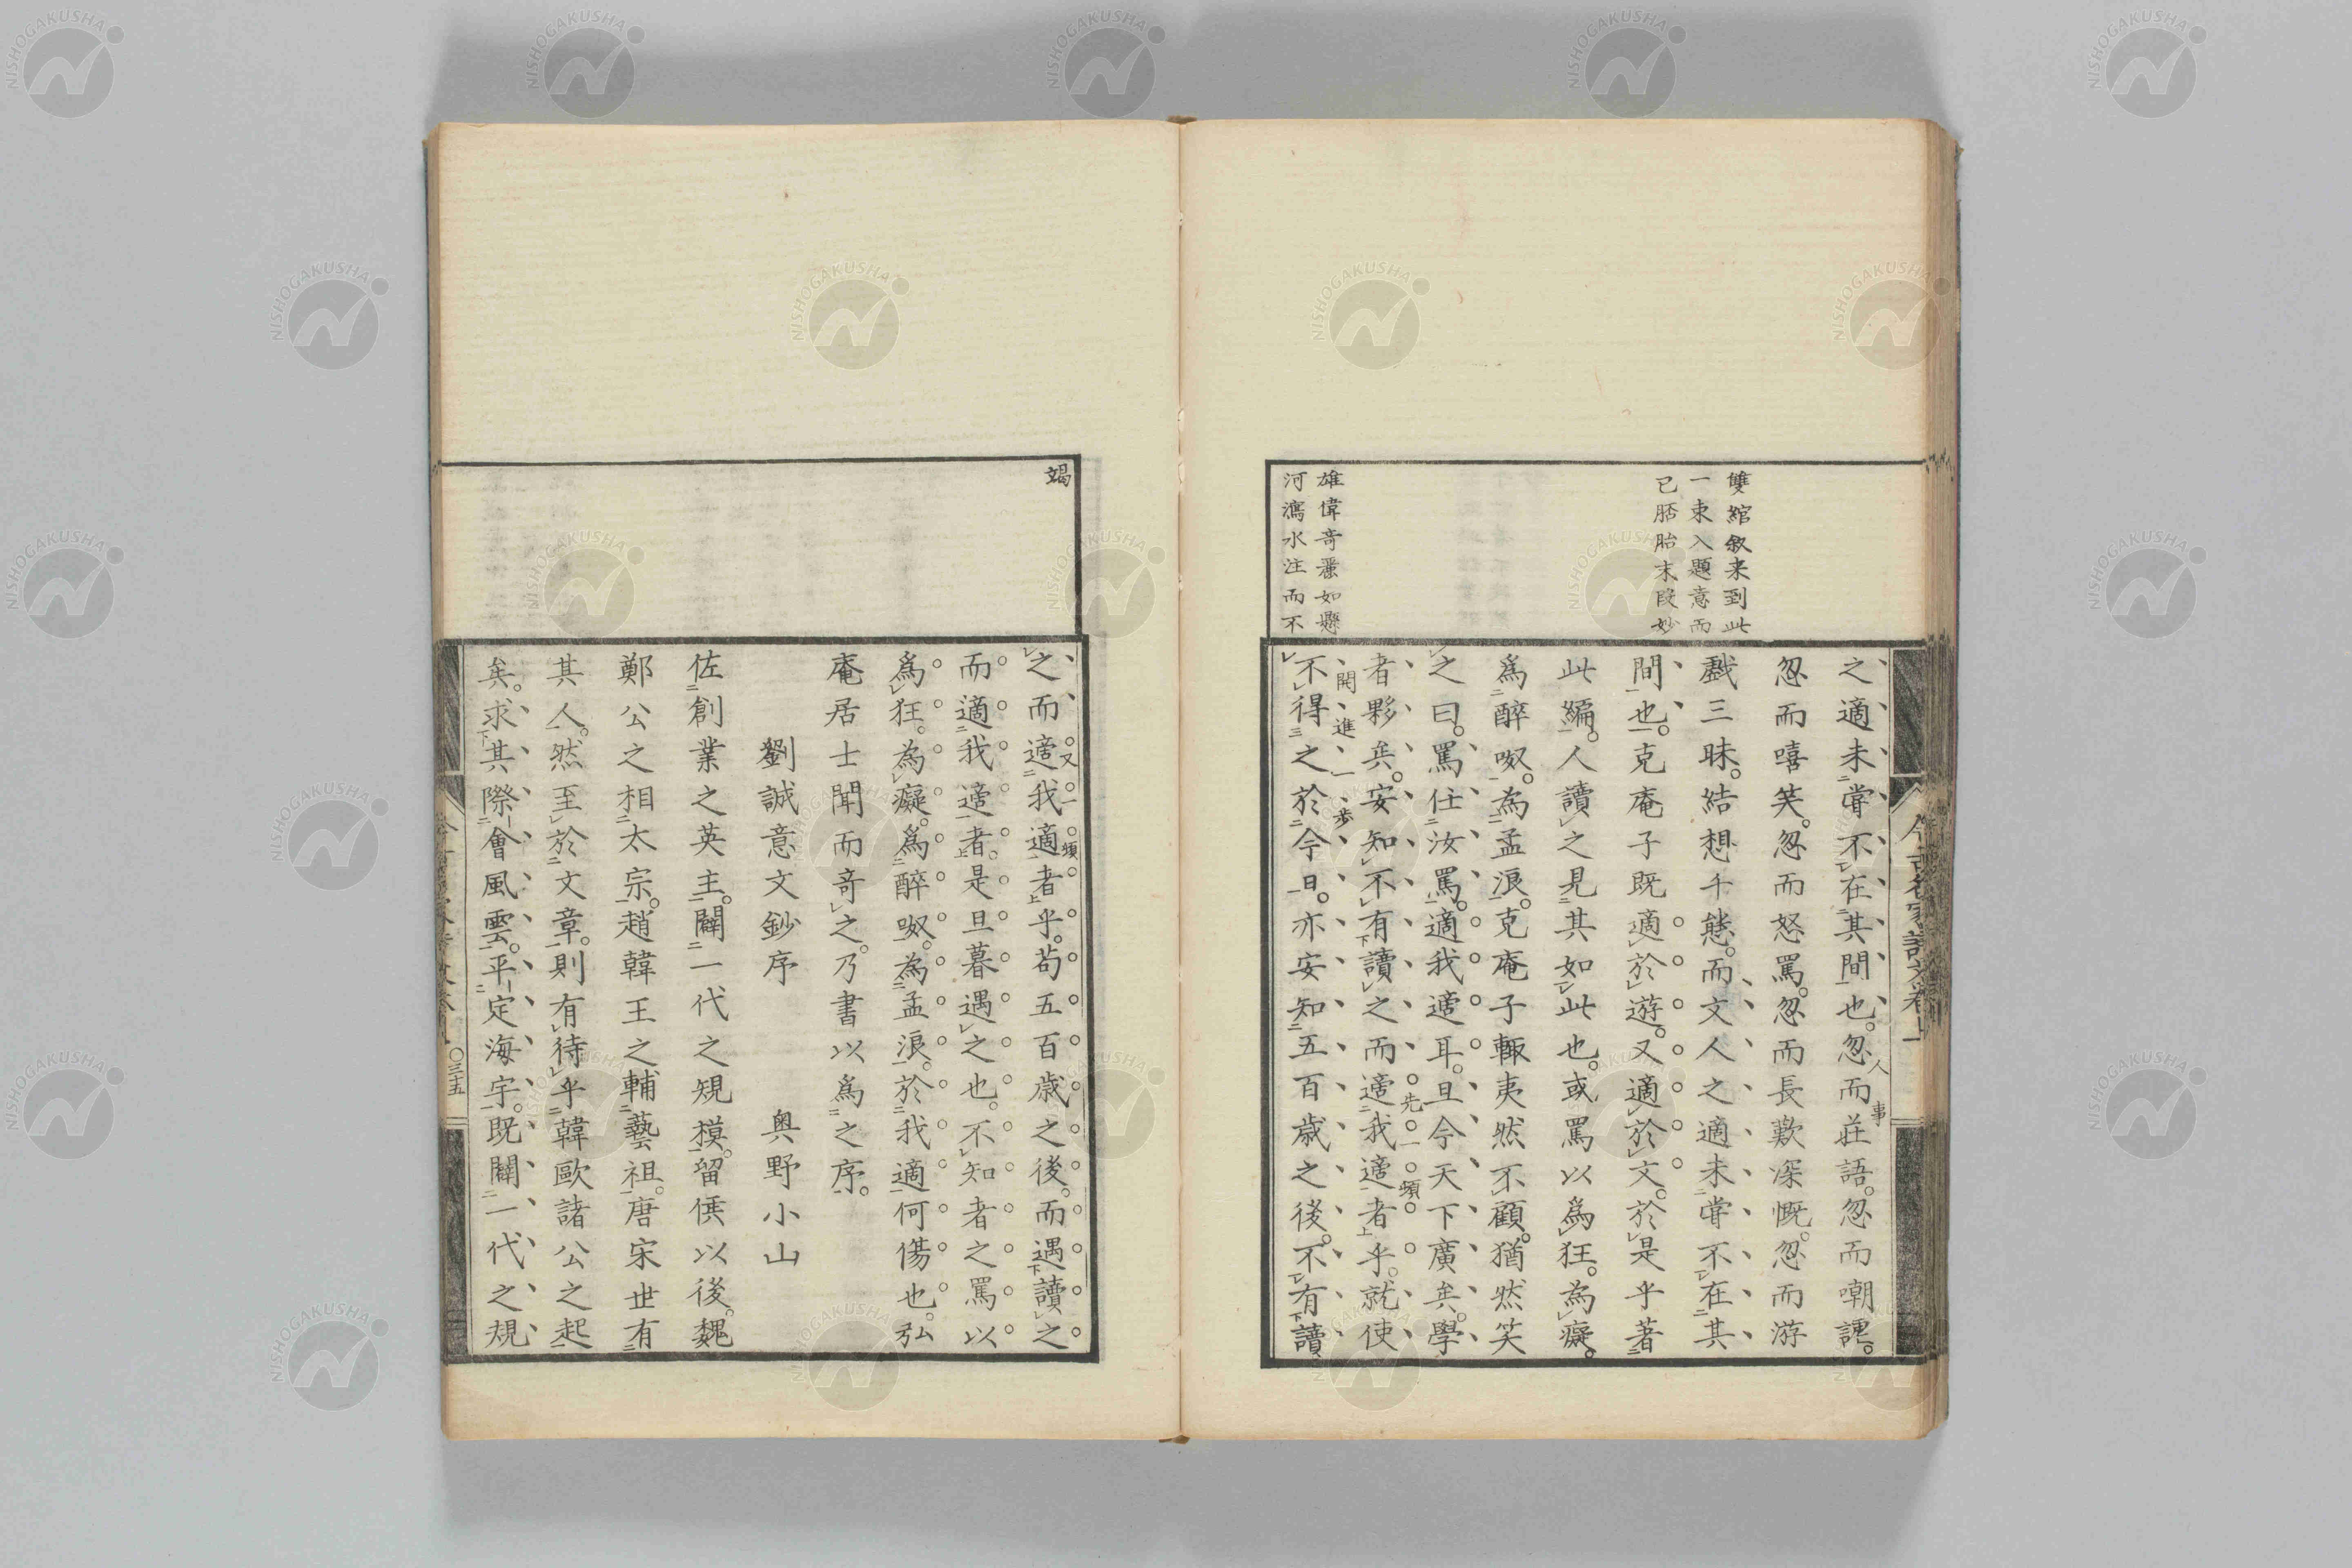 雙綰敘来到此
一束入題意而
已胚胎末段妙
雄偉奇蕙如懸
河瀉水注而不
之適未嘗不在其間也。忽而莊語。忽而嘲謔。
人事
忽而嘻笑。忽而怒罵。忽而長歎深慨。忽而游
戲三昧。結想千態。而文人之適未嘗不在其
間也。克庵子既適於遊。又適於文。於是乎著
此編。人讀之見其如此也。或罵以為狂。為癡。
為醉呶。為孟浪。克庵子輙夷然不顧。猶然笑
之曰。罵任汝罵。適我適耳。且今天下廣矣。學
者夥矣。安知不有讀之而適我適者乎。就使
先一頓
不得之於今日。亦安知五百歳之後。不有讀
開進一步
今古名家詩文卷上
竭
之而適我適者乎。苟五百歳之後。而遇讀之
又一頓
而適我適者。是旦暮遇之也。不知者之罵以
爲狂。為癡。爲醉呶。為孟浪。於我適何傷也。弘
庵居士聞而奇之。乃書以爲之序。
劉誠意文鈔序 奥野小山
佐創業之英主。闢一代之規模。留侯以後。魏
鄭公之相太宗。趙韓王之輔藝祖。唐宋世有
其人。然至於文章。則有待乎韓歐諸公之起
矣。求其際會風雲。平定海宇。既闢一代之規
〇三十五